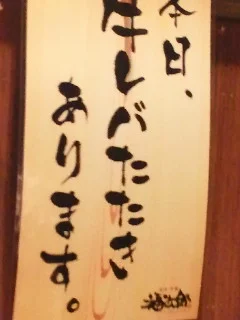 本日、
生レバたたき
あります。